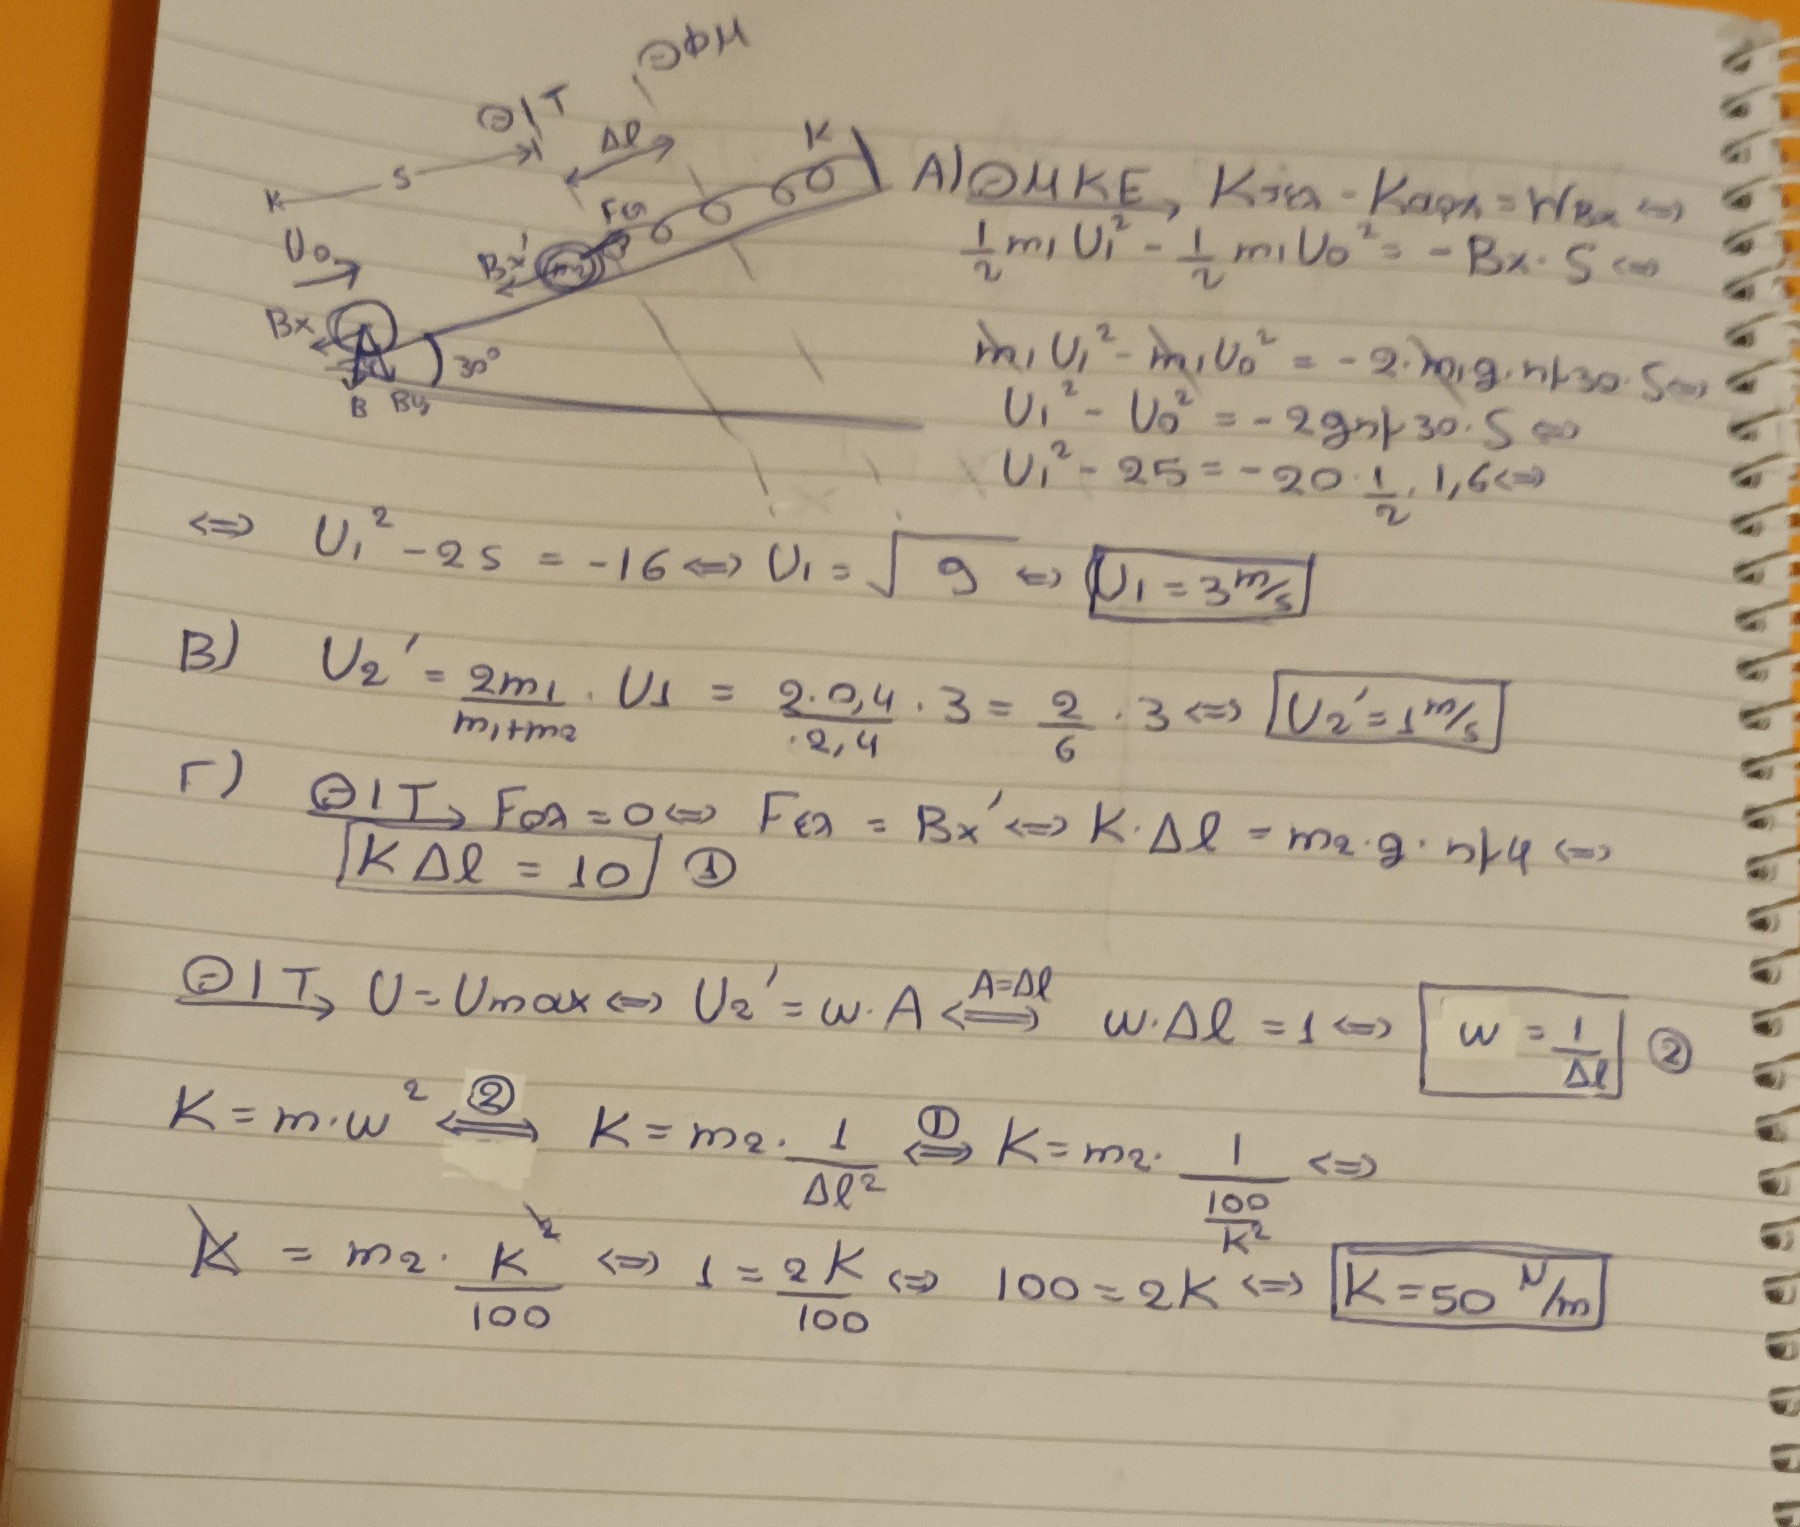 ΘΦΜ
ΘΙΤ
Δl
S
K
Fελ
U₀
Bx'
m₂
Bx
30°
B By
A) ΘΜΚΕ, Kτελ - Kαρχ = WBx <=>
1/2 m₁ U₁² - 1/2 m₁ U₀² = - Bx · S <=>
m₁ U₁² - m₁ U₀² = - 2 · m₁ g · ημ30 · S <=>
U₁² - U₀² = - 2gημ30 · S <=>
U₁² - 25 = - 20 · 1/2 · 1,6 <=>
<=> U₁² - 25 = -16 <=> U₁ = √9 <=> U₁ = 3 m/s
B) U₂' = 2m₁/(m₁+m₂) · U₁ = 2·0,4/2,4 · 3 = 2/6 · 3 <=> U₂' = 1 m/s
Γ) ΘΙΤ, Fολ = 0 <=> Fελ = Bx' <=> K · Δl = m₂ · g · ημφ <=>
KΔl = 10 ①
ΘΙΤ, U = Umax <=> U₂' = ω · A <=> A=Δl ω · Δl = 1 <=> ω = 1/Δl ②
K = m · ω² <=> ② K = m₂ · 1/Δl² <=> ① K = m₂ · 1/(100/K²) <=>
K = m₂ · K²/100 <=> 1 = 2K/100 <=> 100 = 2K <=> K = 50 N/m